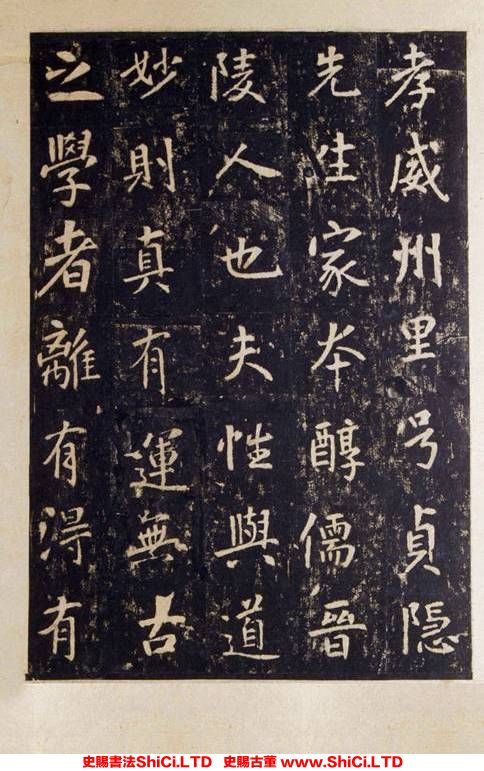 孝威州里号貞隐
先生家本醇儒晉
陵人也夫性與道
妙則真有運無古
之學者離有得有
史賜書法ShiCi.LTD 史賜古董 www.ShiCi.LTD